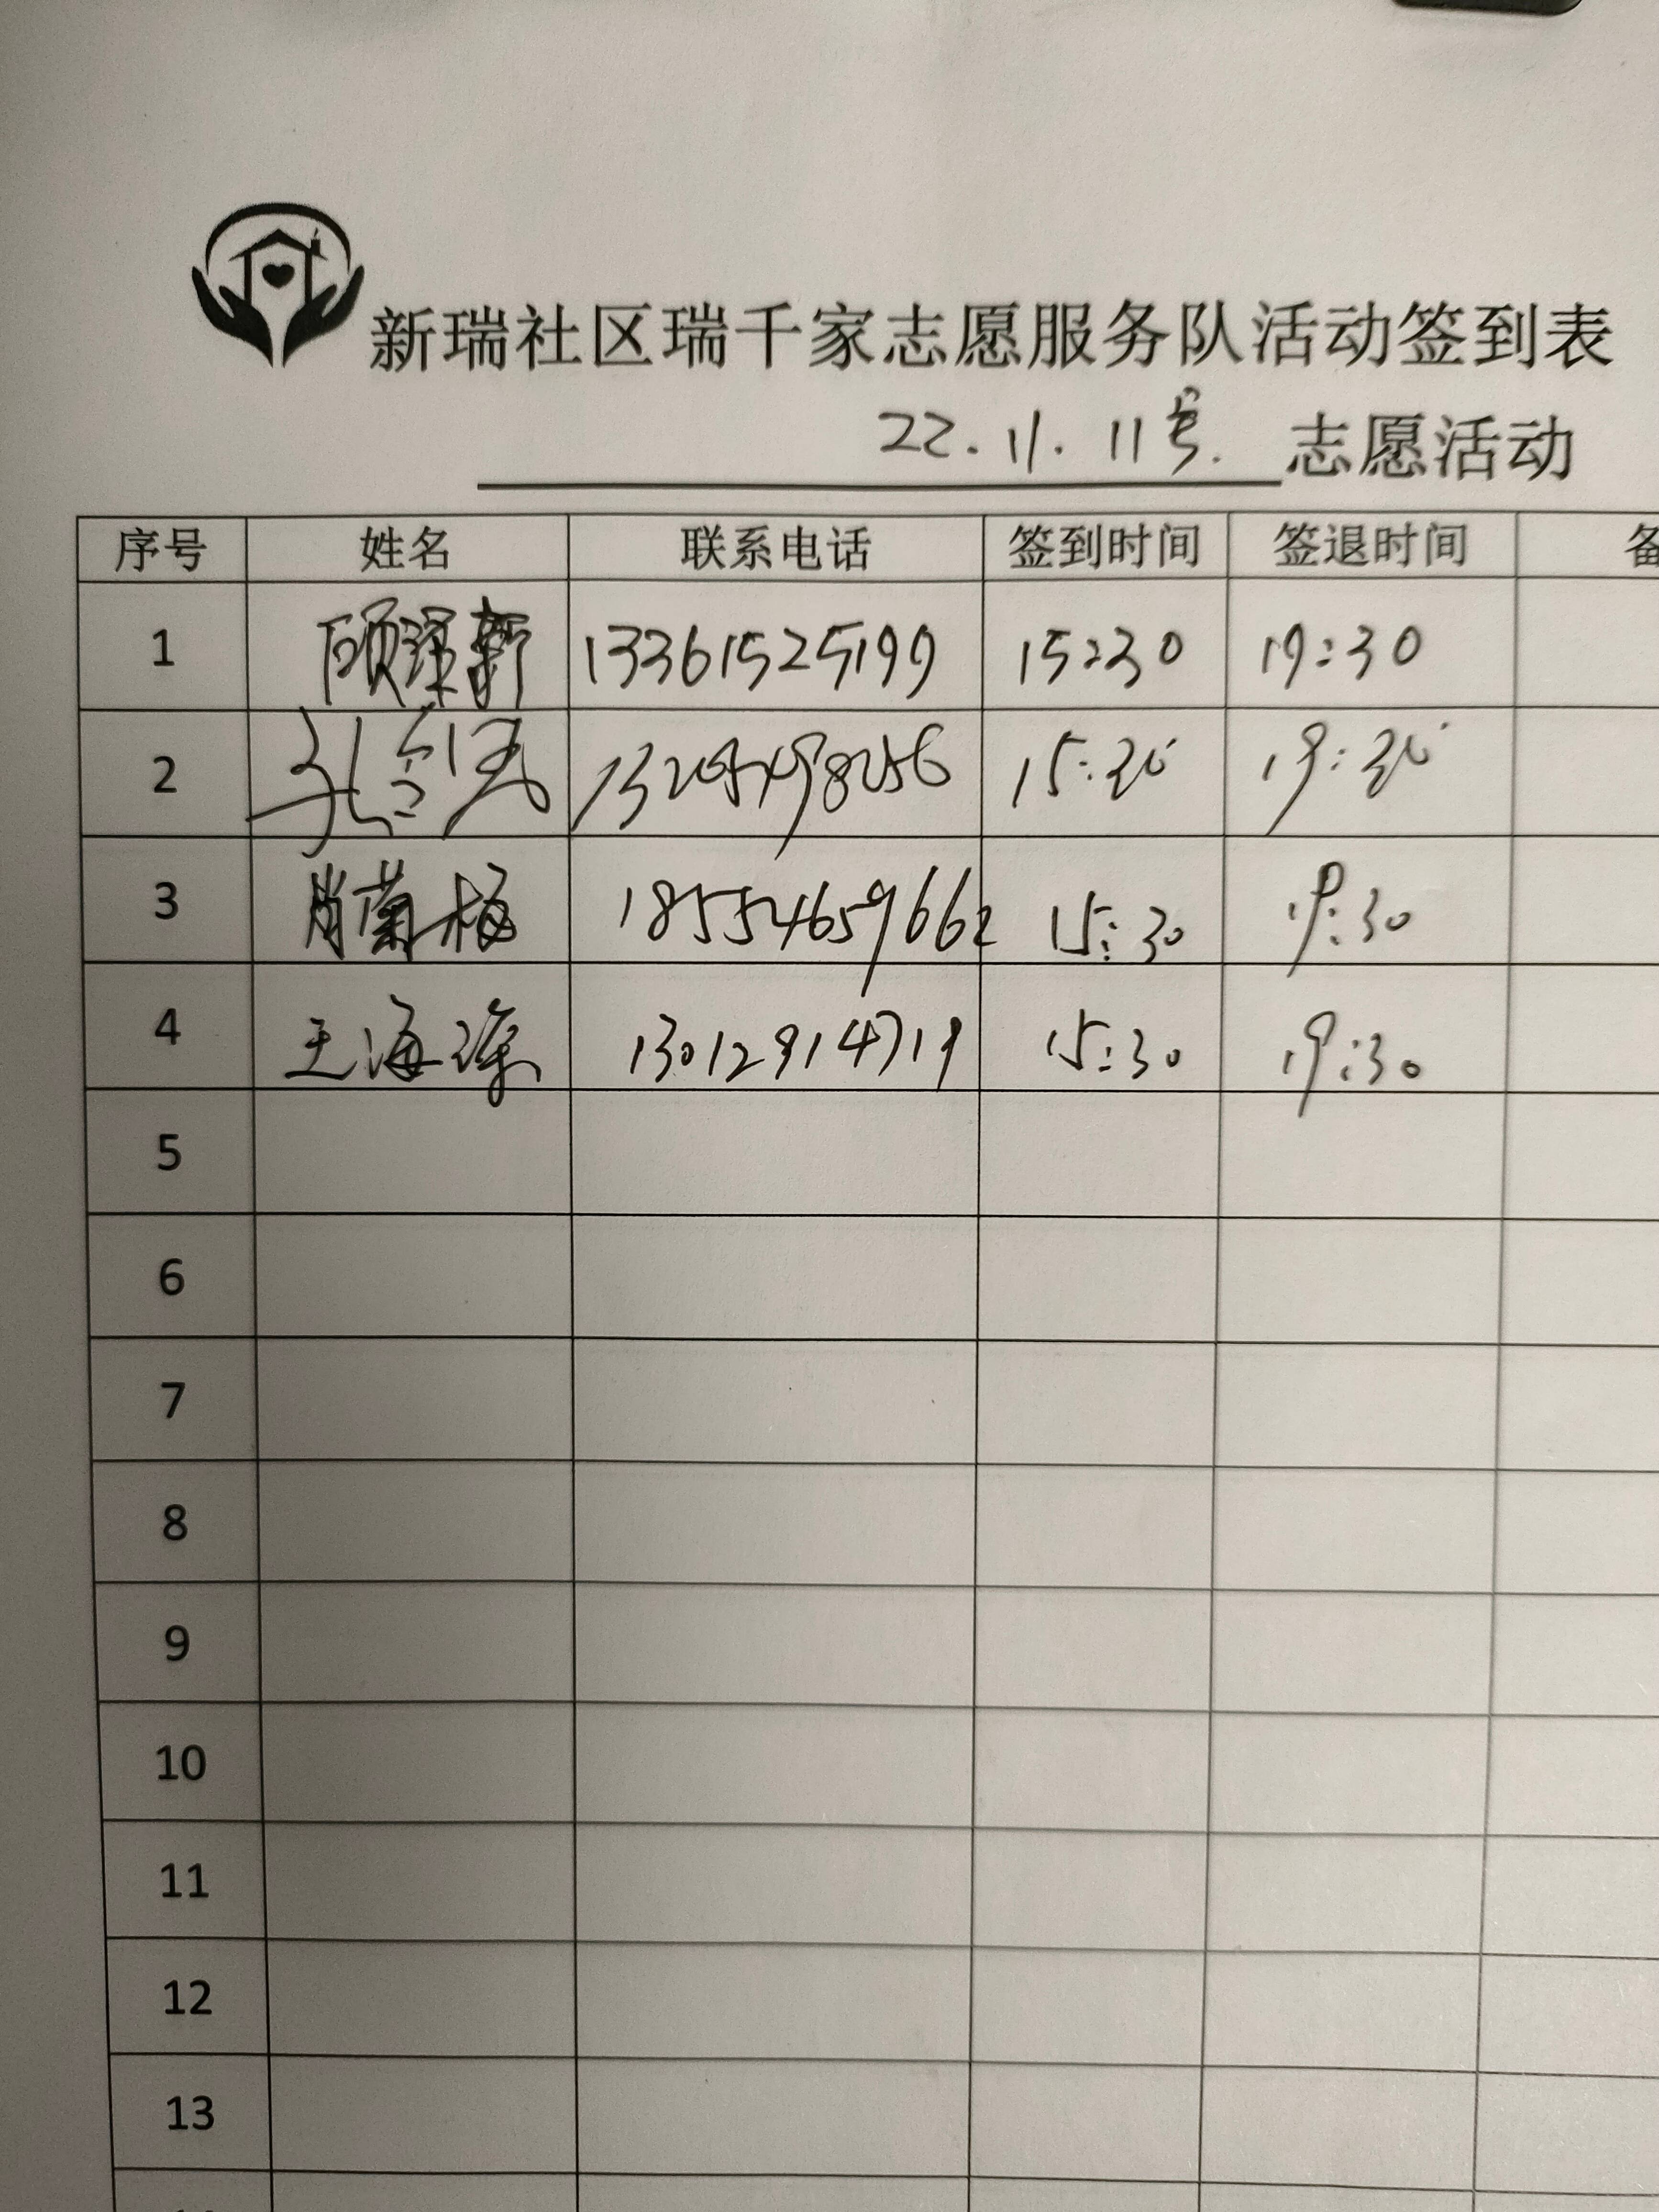 新瑞社区瑞千家志愿服务队活动签到表
22.11.11号. 志愿活动
序号 姓名 联系电话 签到时间 签退时间 备
1 顾泽新 13361525199 15:30 19:30
2 15:30 19:30
3 肖菊梅 18554659662 15:30 19:30
4 王海漂 13012914719 15:30 19:30
5
6
7
8
9
10
11
12
13